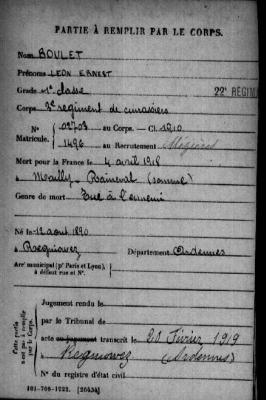 PARTIE À REMPLIR PAR LE CORPS.
Nom BOULET
Prénoms LEON ERNEST
Grade 1e classe
22e RÉGIM
Corps 3e regiment de cuirassiers
No 02703 au Corps. — Cl. 1910
Matricule. 1496 au Recrutement Mézières
Mort pour la France le 4 avril 1918
à Mailly-Raineval (somme)
Genre de mort Tué à l'ennemi
Né le 12 aout 1890
à Regniowez Département Ardennes
Arrt municipal (pr Paris et Lyon),
à défaut rue et No.
Cette partie n'est pas à remplir par le Corps.
Jugement rendu le
par le Tribunal de
acte ou jugement transcrit le 20 Février 1919
à Regniowez (Ardennes)
No du registre d'état civil
101-708-1922. [26434]